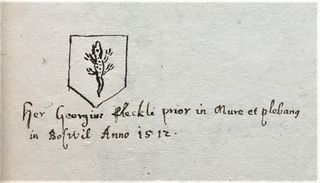 Her Georgius Fleckli prior in Mure et plebanus
in Boswil Anno 1512.